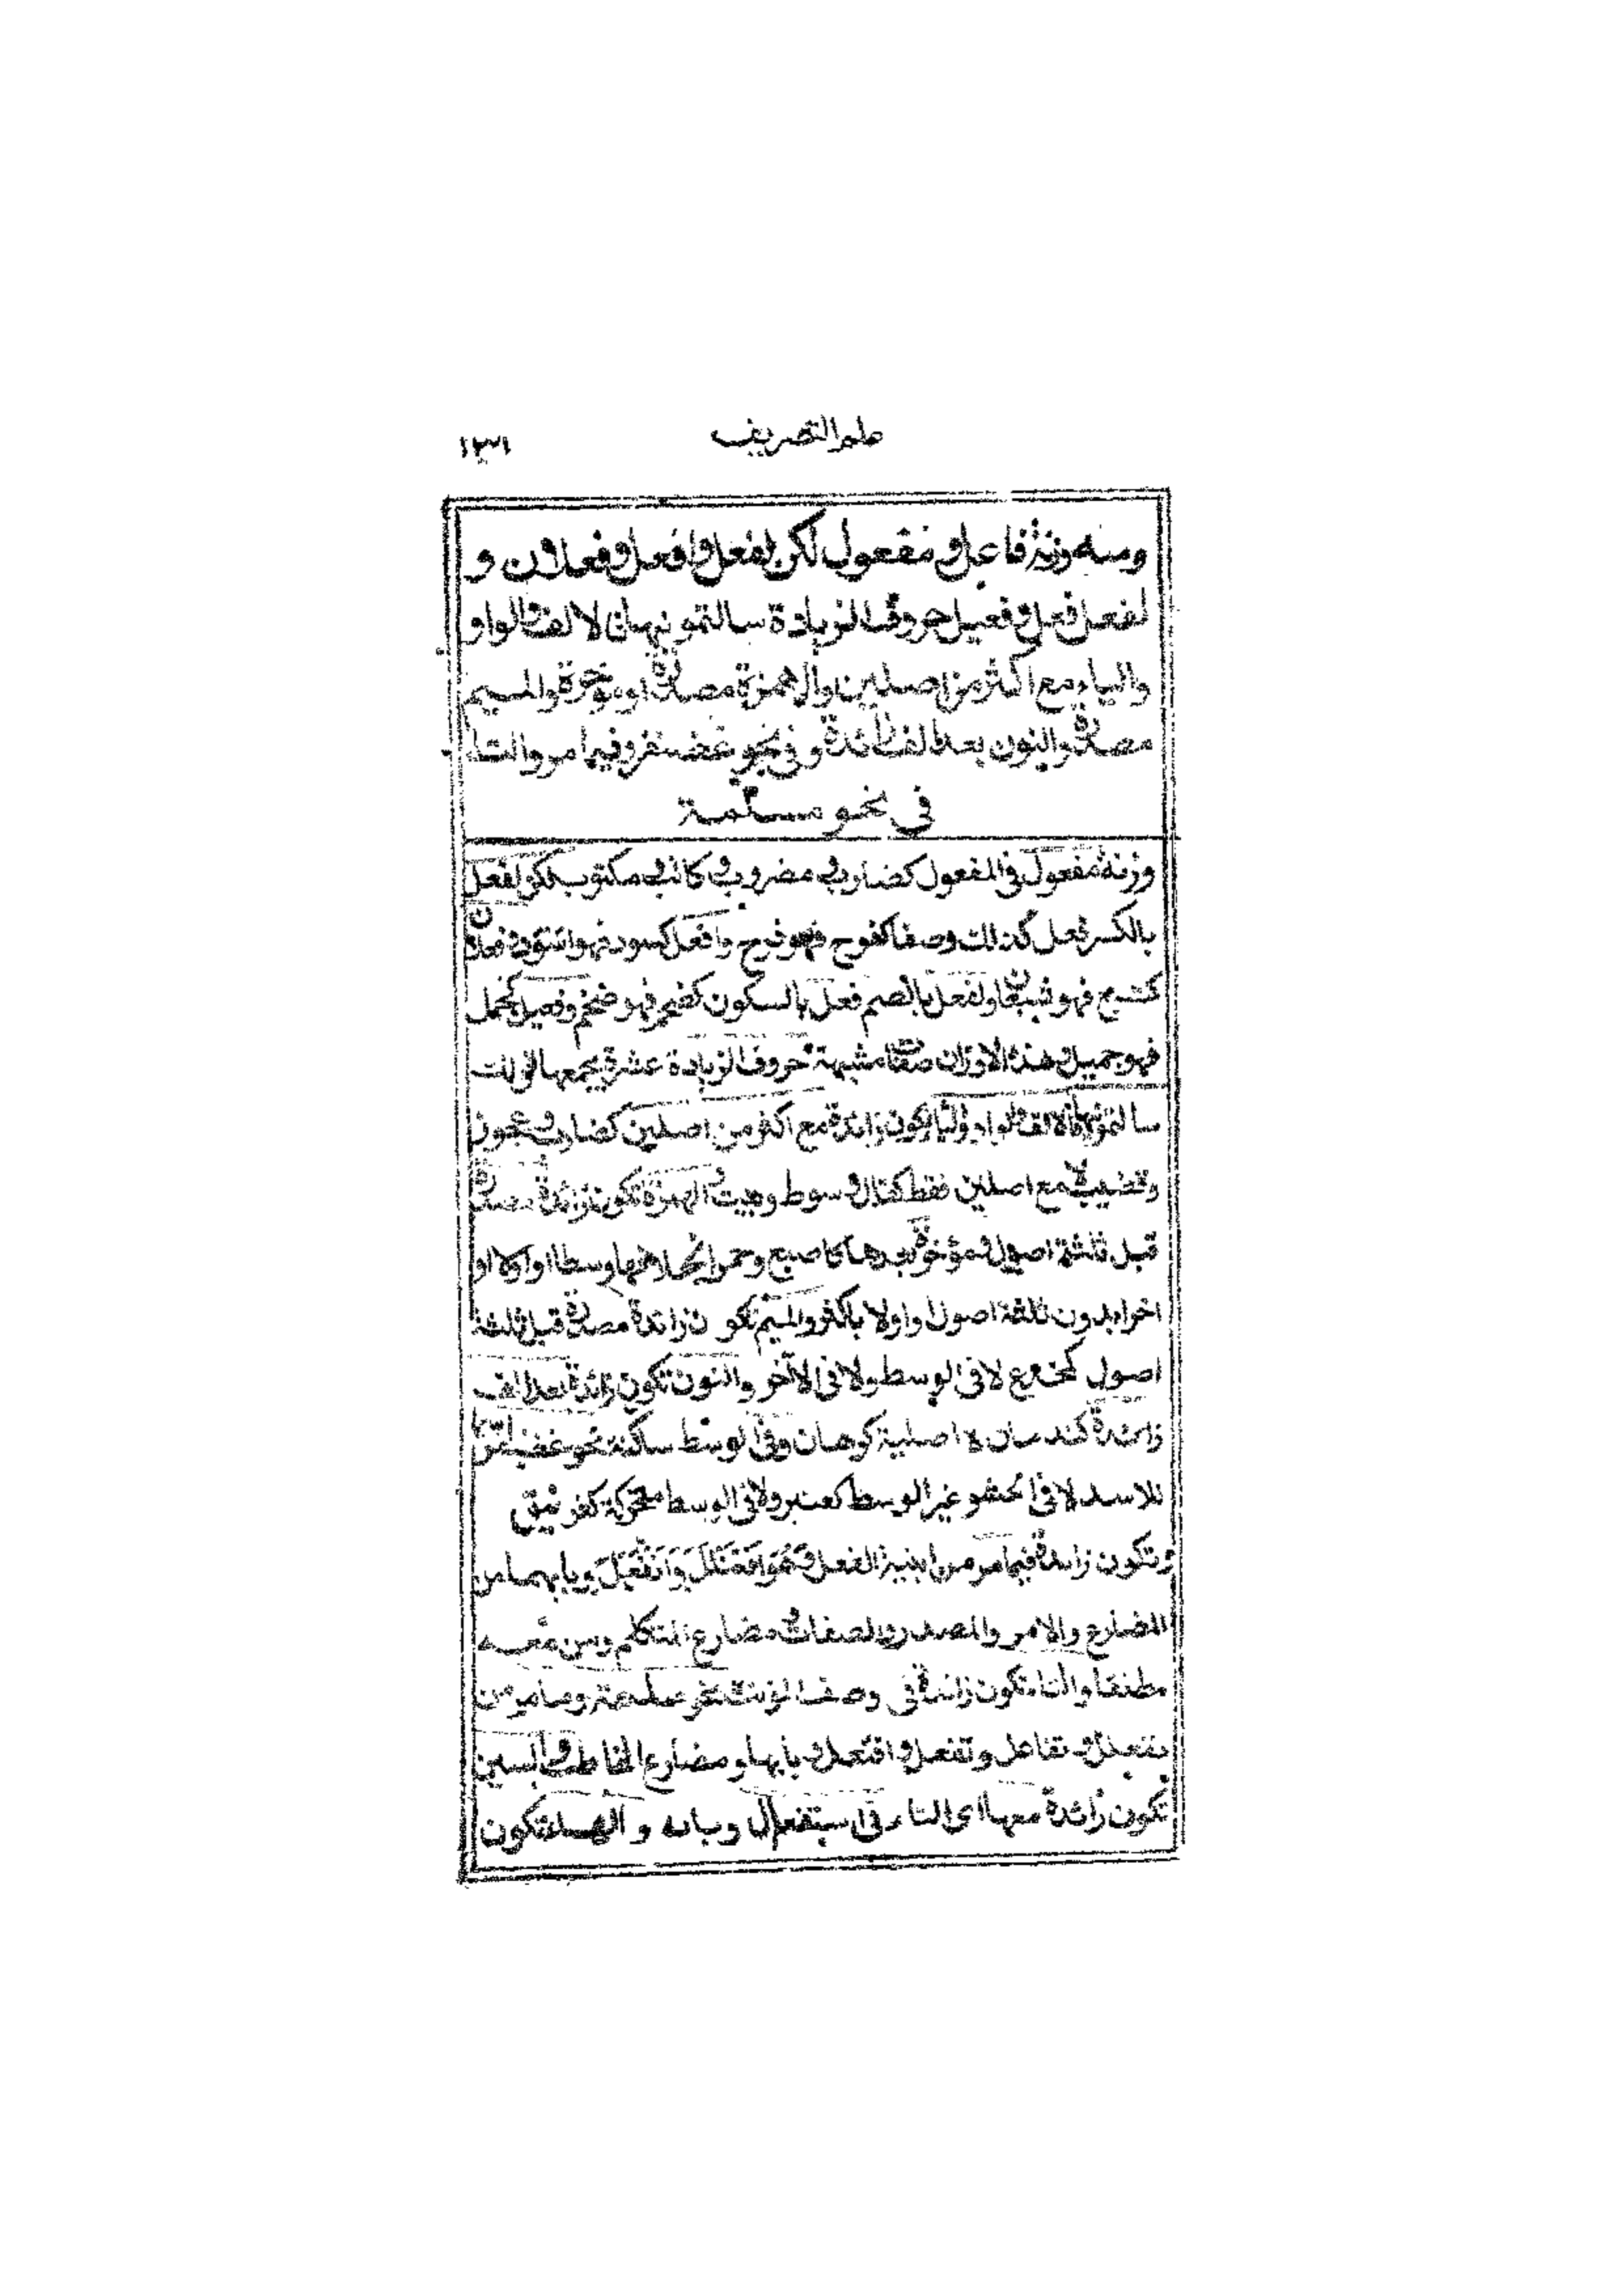 علم التصريف ١٣١
ومنه وزنة فاعل ومفعول لكن لفعل وافعل وفعلان و
لفعل فعل وفعيل حروف الزيادة سالتمونيها فالالف والواو
والياء مع اكثر من اصلين والهمزة مصدرة او مؤخرة والميم
مصدرة والنون بعد الف زائدة وفي نحو غضنفر وفيما مر والتاء
في نحو مسلمة
وزنة مفعول في المفعول كضارب ومضروب وكاتب ومكتوب لكن لفعل
بالكسر فعل كذلك وصفا كفرح فهو فرح وافعل كسود فهو اسود وفعلان
كشبع فهو شبعان ولفعل بالضم فعل بالسكون كضخم فهو ضخم وفعيل كجمل
فهو جميل وهذه الاوزان صفات مشبهة حروف الزيادة عشرة يجمعها قولك
سالتمونيها فالالف والواو والياء تكون زائدة مع اكثر من اصلين كضارب وعجوز
وقضيب لا مع اصلين فقط كقال وسوط وبيت والهمزة تكون زائدة مصدرة
قبل ثلثة اصول ومؤخرة بعدها كاصبع وحمراء بخلافها وسطا او اولا او
اخرا بدون ثلثة اصول واولا باكثر والميم تكون زائدة مصدرة قبل ثلثة
اصول كمخدع لا في الوسط ولا في الآخر والنون تكون زائدة بعد الف
زائدة كندمان لا اصلية كوهان وفي الوسط ساكنة نحو غضنفر
للاسد لا في الحشو غير الوسط كعنبر ولا في الوسط متحركة كغرنيق
وتكون زائدة فيما مر من ابنية الفعل وَانْفَعَلَ وبابهما من
المضارع والامر والمصدر والصفات ومضارع المتكلم ومن معه
مطلقا والتاء تكون زائدة في وصف المؤنث نحو مسلمة وما مر من
تفعلل وتفاعل وتفعل وافتعل وبابها ومضارع المخاطب والسين
تكون زائدة معها اى التاء في استفعال وبابه و الهاء تكون